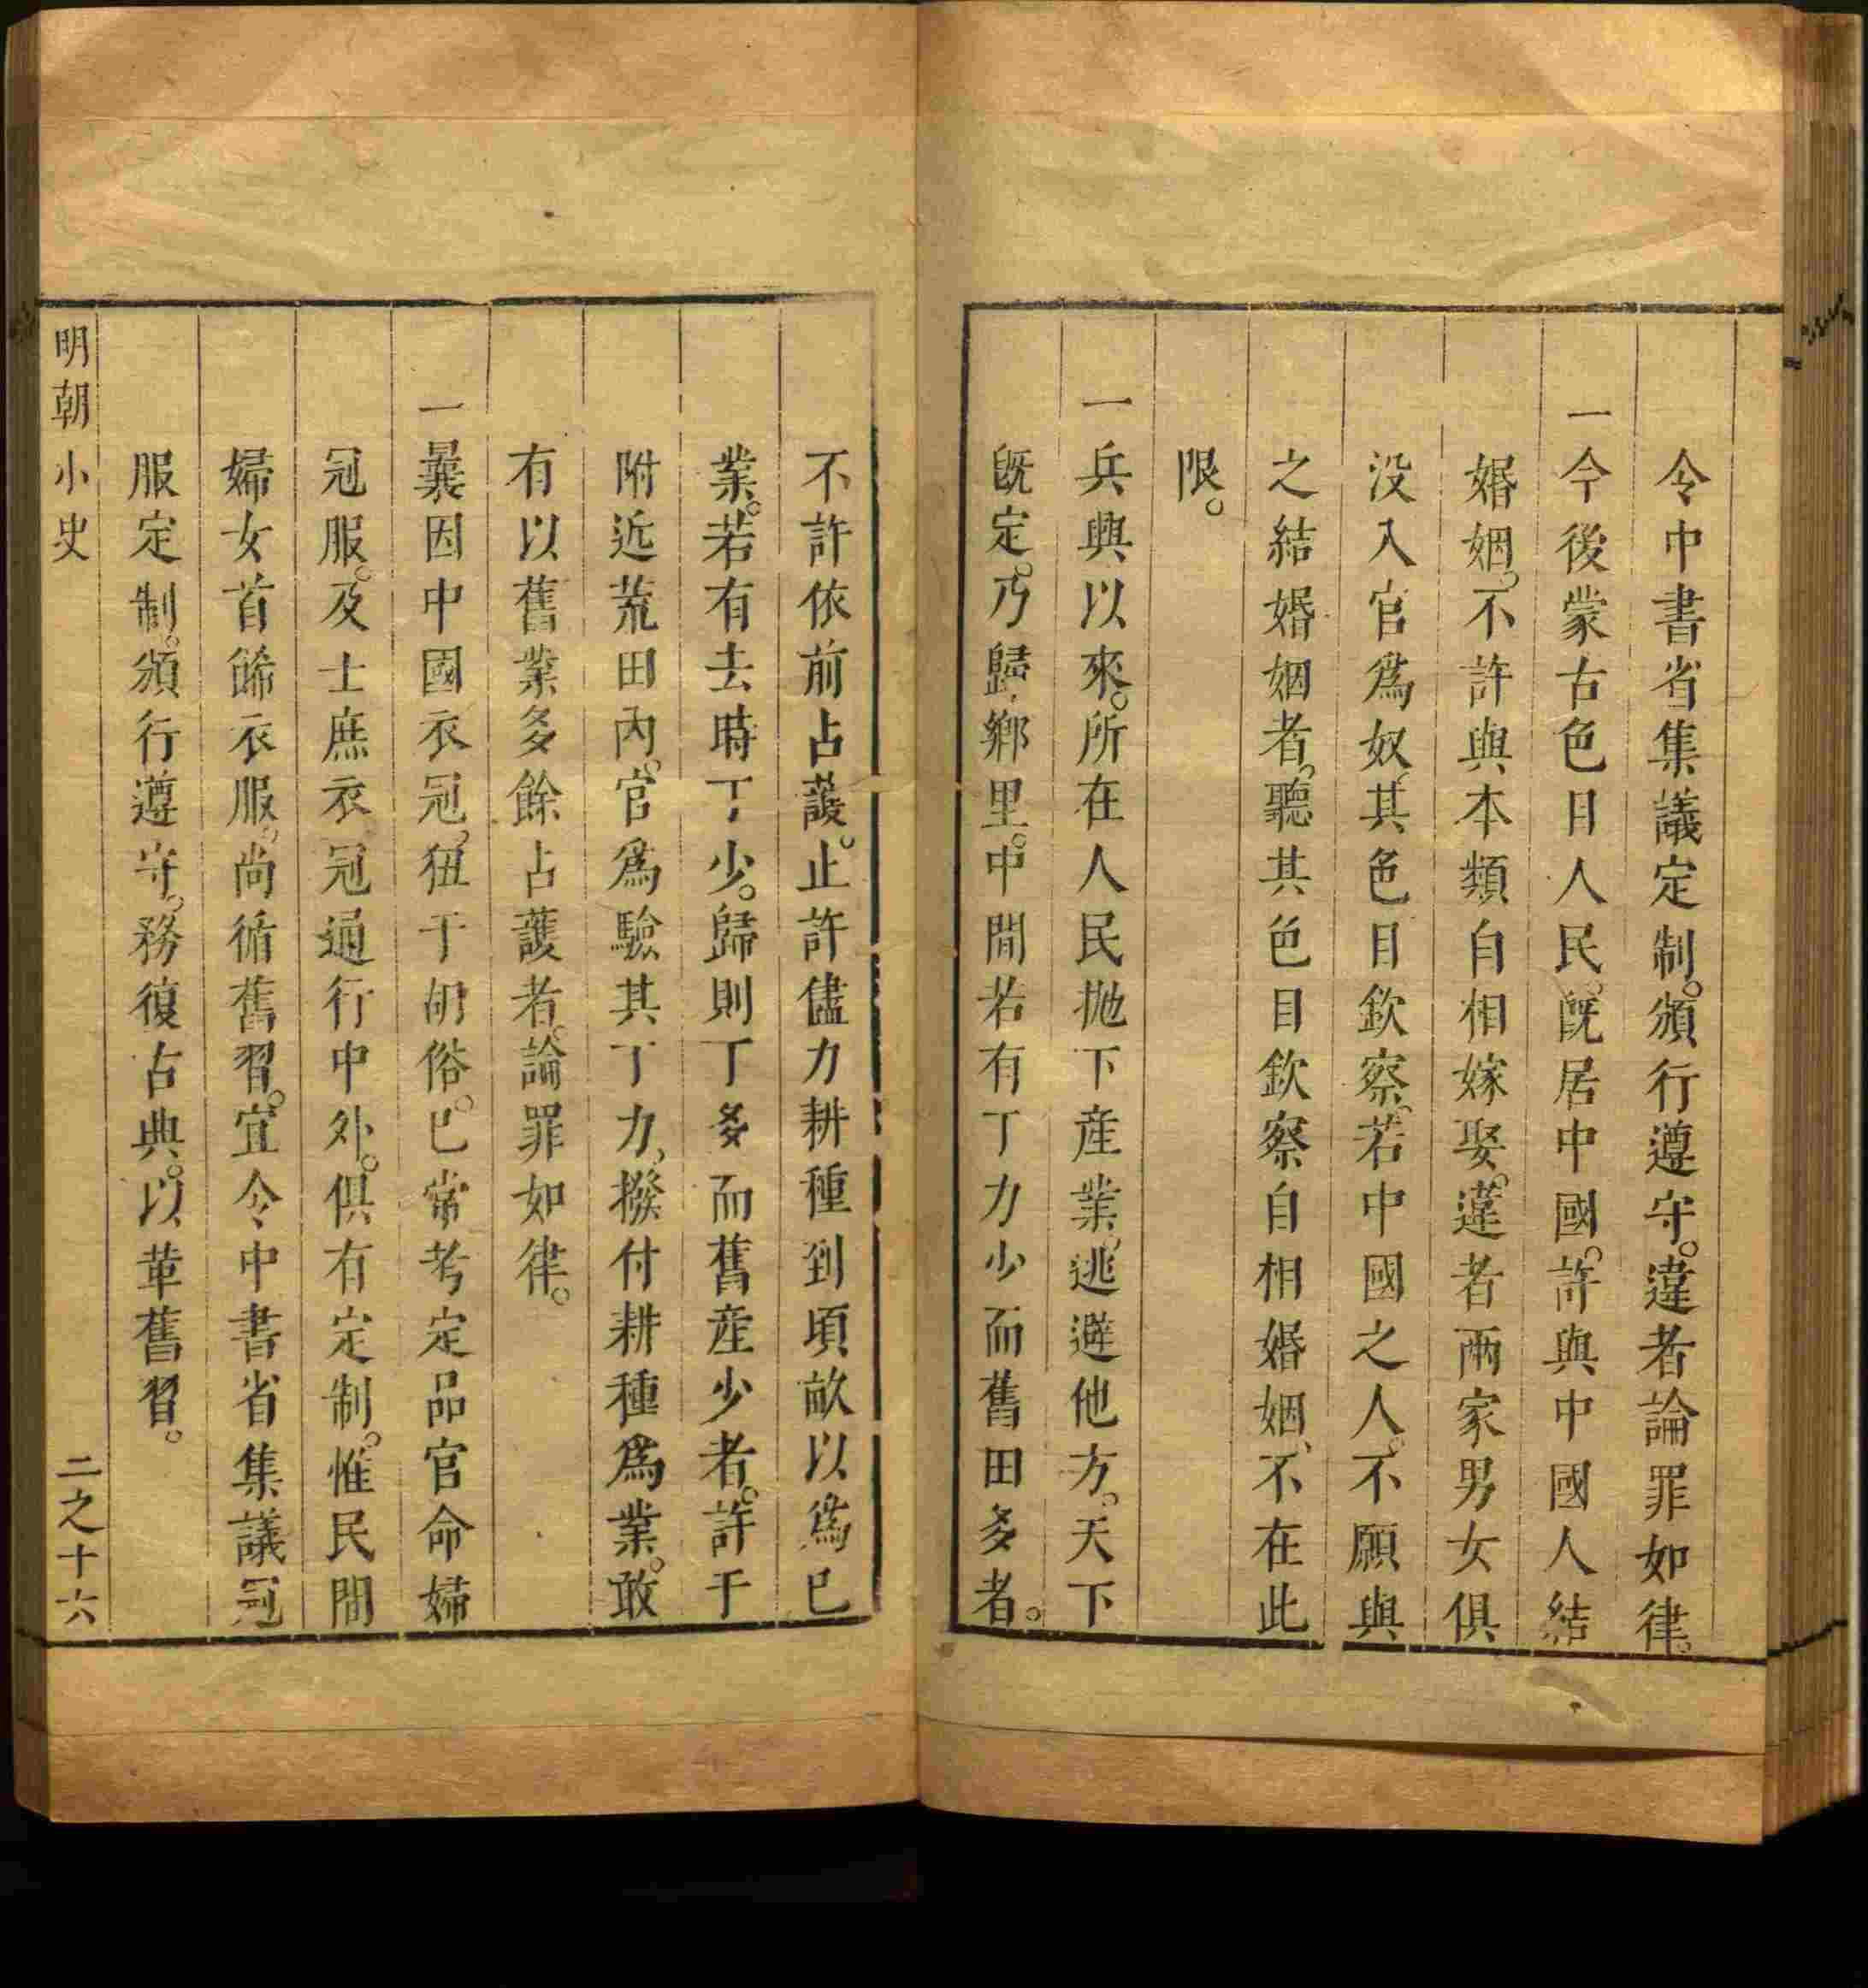 令中書省集議定制。頒行遵守。違者論罪如律。
一今後蒙古色目人民。既居中國。許與中國人結
婚姻。不許與本類自相嫁娶。違者兩家男女俱
没入官爲奴。其色目欽察。若中國之人。不願與
之結婚姻者。聽其色目欽察自相婚姻、不在此
限。
一兵興以來。所在人民抛下産業。逃避他方。天下
既定。乃歸鄉里。中間若有丁力少而舊田多者。
不許依前占護。止許儘力耕種到頃畝以爲已
業。若有去時丁少。歸則丁多而舊産少者。許于
附近荒田內。官爲驗其丁力、撥付耕種爲業。敢
有以舊業多餘占護者。論罪如律。
一曩因中國衣冠。狃于胡俗。已常考定品官命婦
冠服。及士庶衣冠通行中外。俱有定制。惟民間
婦女首餙衣服。尚循舊習。宜令中書省集議冠
服定制。頒行遵守。務復古典。以革舊習。
明朝小史
二之十六